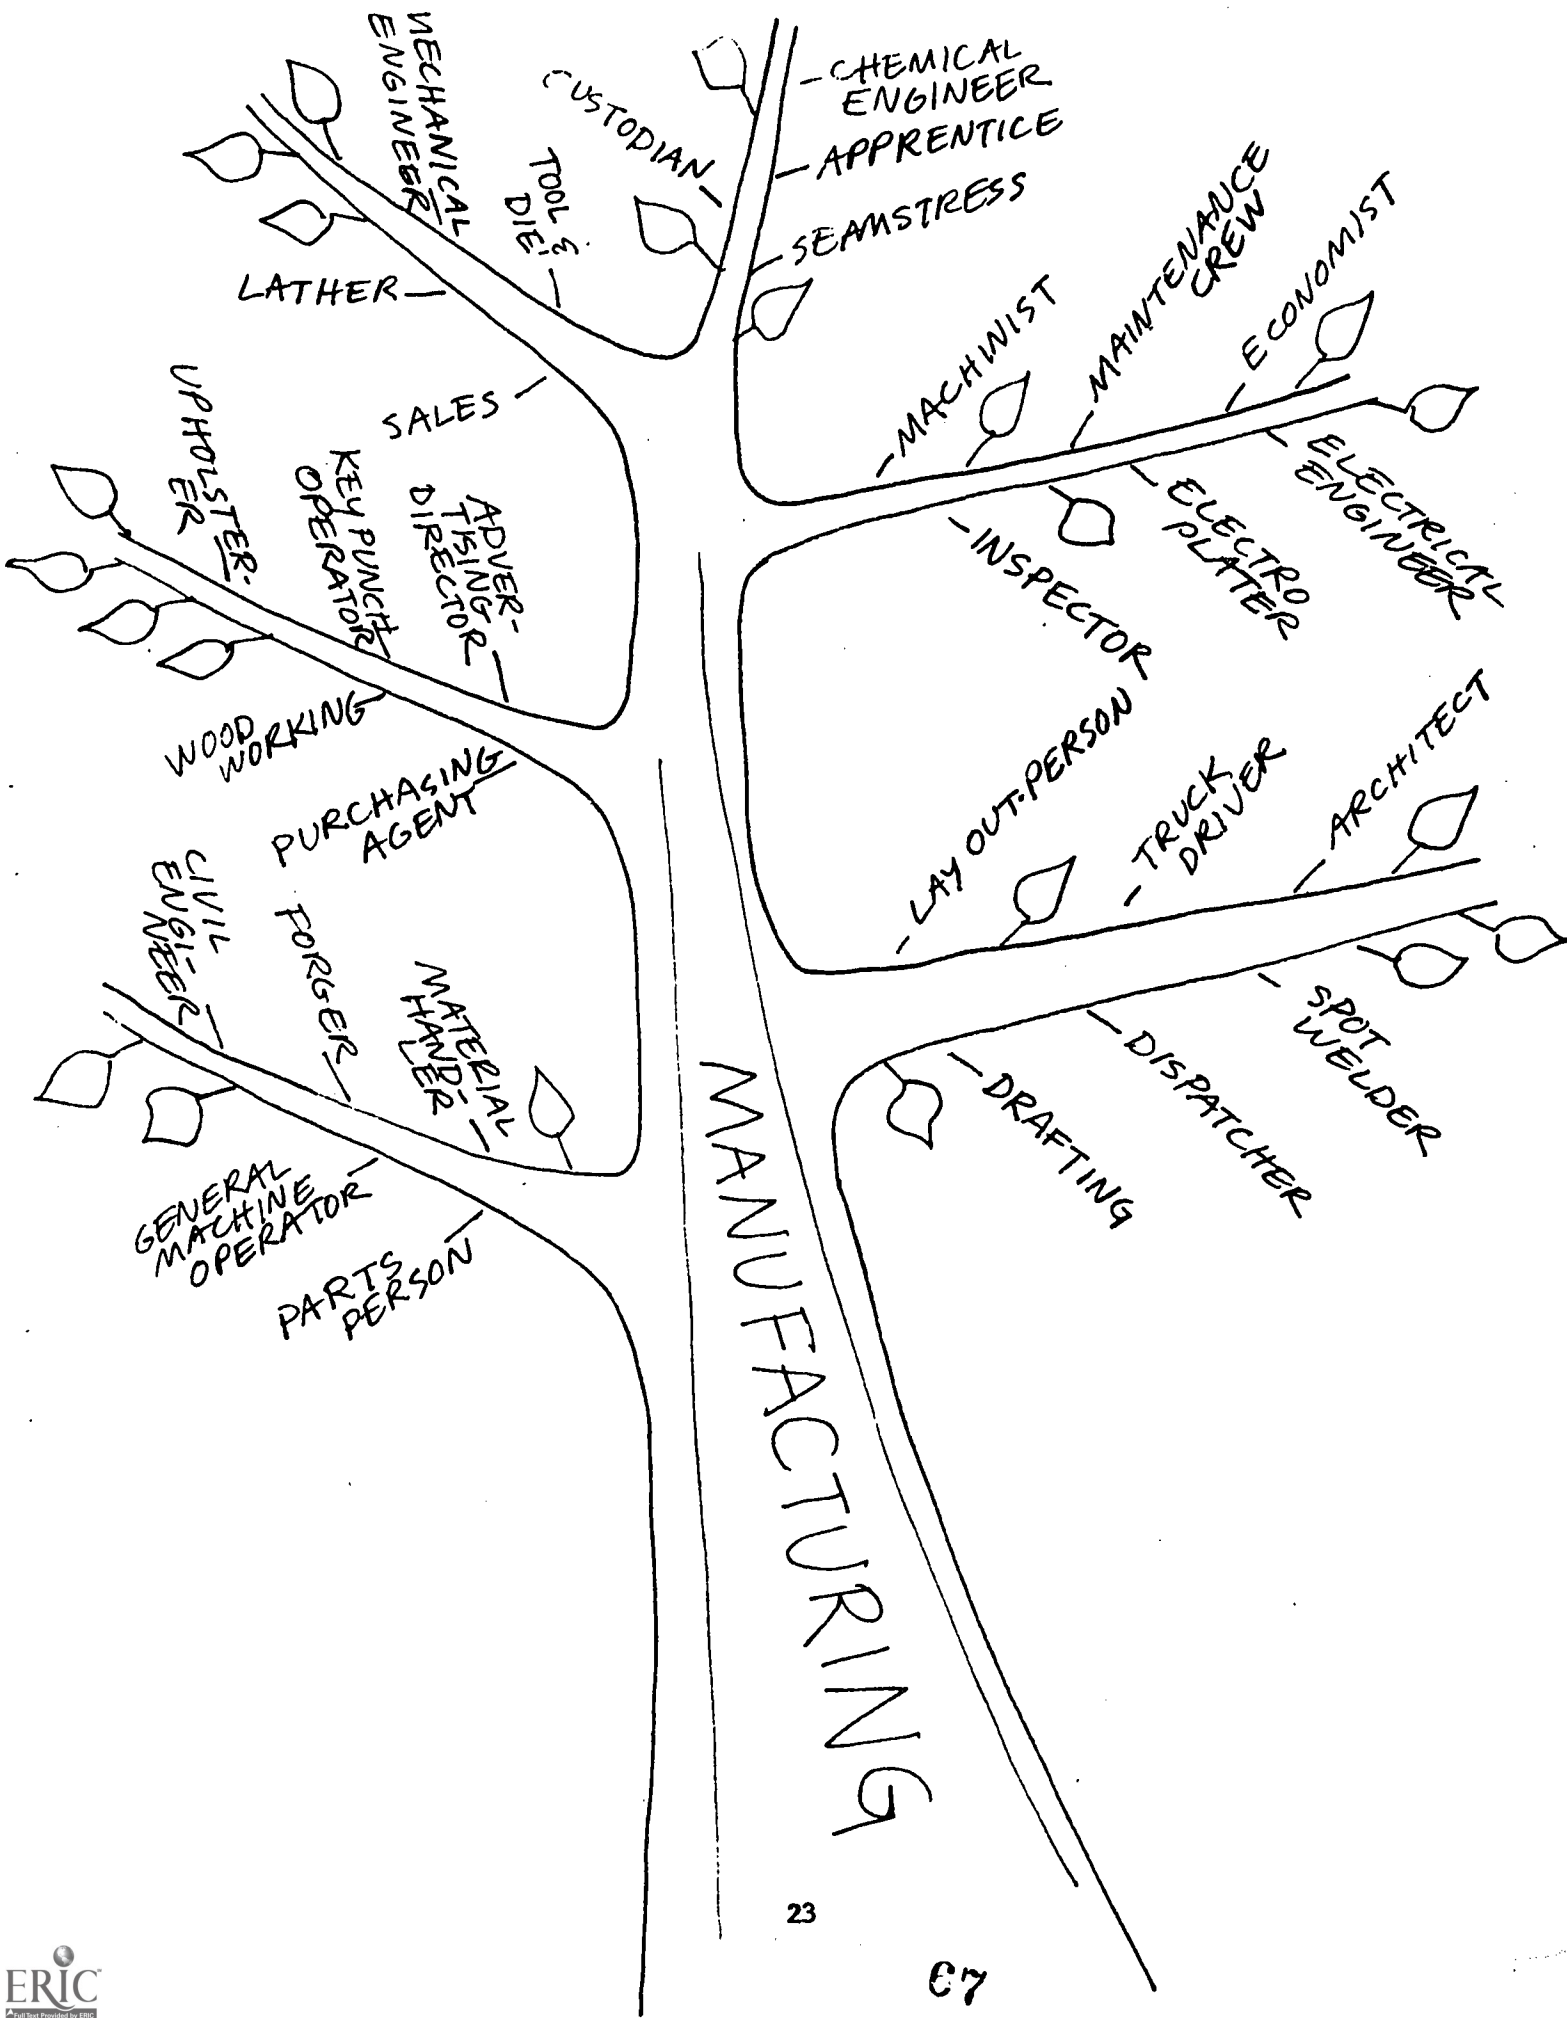 MECHANICAL
ENGINEER
TOOL &
DIE
CUSTODIAN
CHEMICAL
ENGINEER
APPRENTICE
SEAMSTRESS
LATHER
SALES
MACHINIST
MAINTENANCE
CREW
ECONOMIST
INSPECTOR
ELECTRO
PLATER
ELECTRICAL
ENGINEER
UPHOLSTER-
ER
KEY PUNCH
OPERATOR
ADVER-
TISING
DIRECTOR
WOOD
WORKING
PURCHASING
AGENT
LAY OUT-PERSON
TRUCK
DRIVER
ARCHITECT
DRAFTING
DISPATCHER
SPOT
WELDER
CIVIL
ENGI-
NEER
FORGER
MATERIAL
HAND-
LER
GENERAL
MACHINE
OPERATOR
PARTS
PERSON
MANUFACTURING
23
67
ERIC
Full Text Provided by ERIC